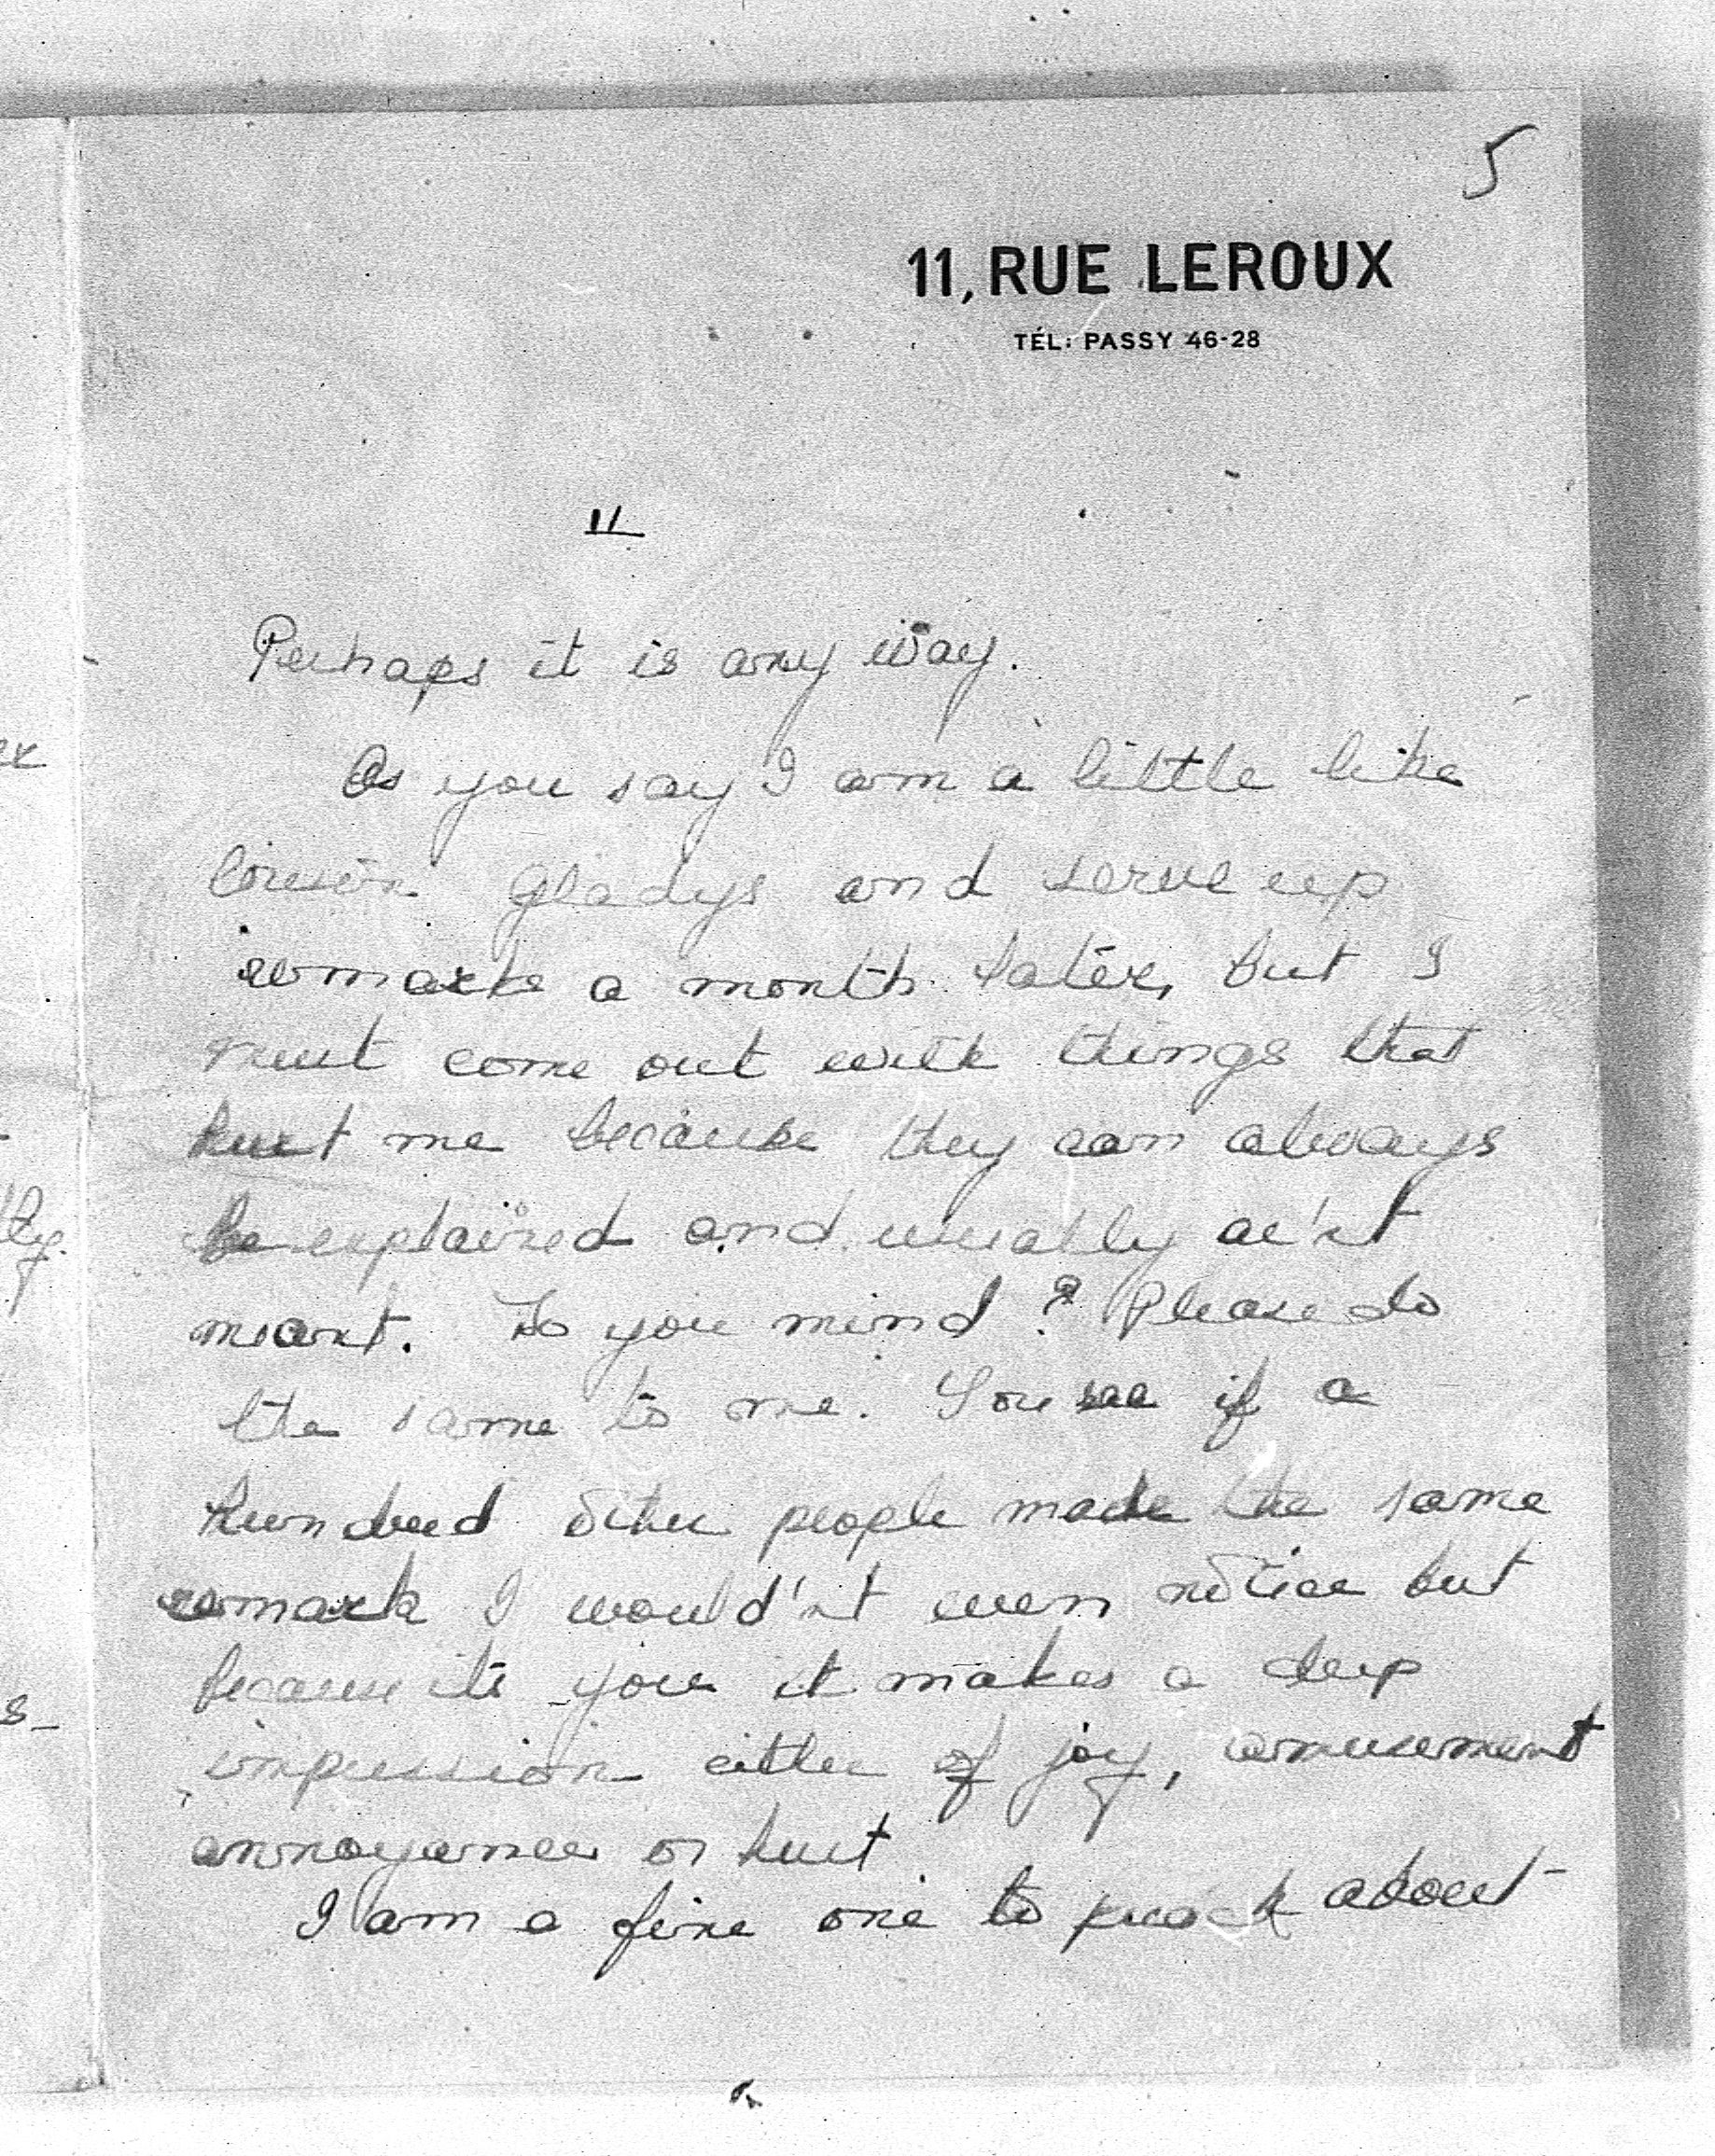 5
11, RUE LEROUX
TÉL: PASSY 46-28
11
Perhaps it is any way.
As you say I am a little like
Cousin Gladys and serve up
remarks a month later, but I
must come out with things that
hurt me because they can always
be explained and usually ai'nt
meant. Do you mind? Please do
the same to me. You see if a
hundred other people made the same
remark I would'nt even notice but
because its you it makes a deep
impression either of joy, amusement
annoyance or hurt
I am a fine one to about